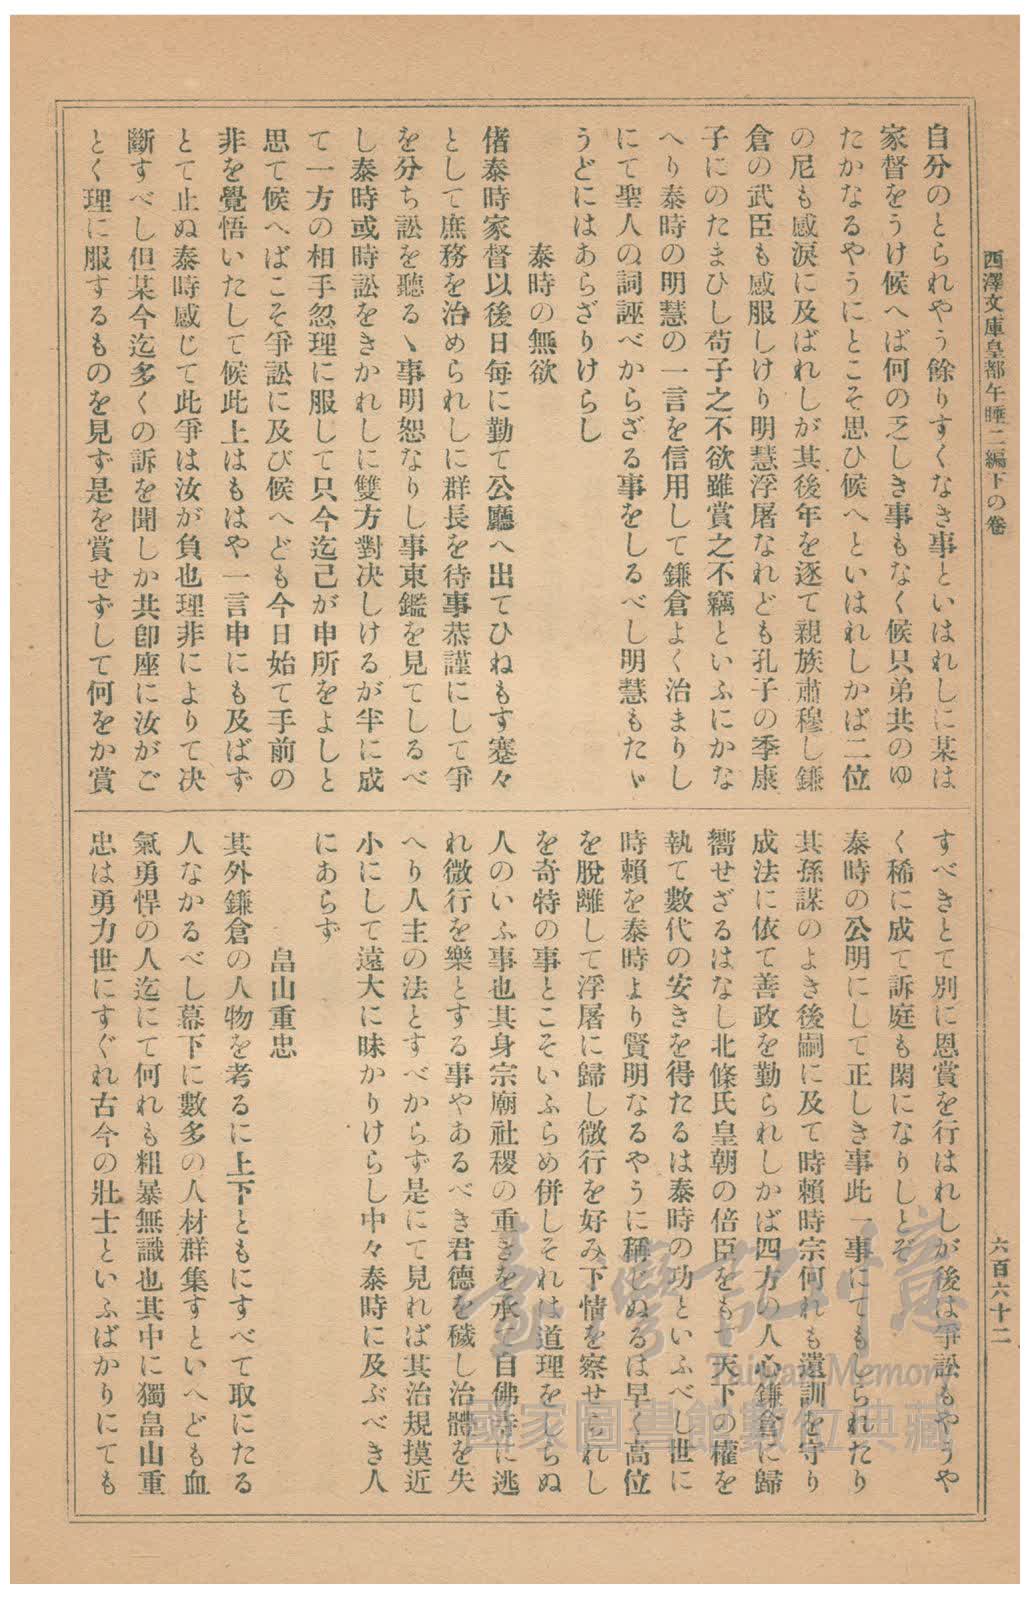 西澤文庫皇都午睡二編下の卷
六百六十二
自分のとられやう餘りすくなき事といはれしに某は
家督をうけ候へば何の乏しき事もなく候只弟共のゆ
たかなるやうにとこそ思ひ候へといはれしかば二位
の尼も感涙に及ばれしが其後年を逐て親族肅穆し鎌
倉の武臣も感服しけり明慧浮屠なれども孔子の季康
子にのたまひし苟子之不欲雖賞之不竊といふにかな
へり泰時の明慧の一言を信用して鎌倉よく治まりし
にて聖人の詞誣べからざる事をしるべし明慧もたゞ
うどにはあらざりけらし
泰時の無欲
偖泰時家督以後日每に勤て公廳へ出てひねもす蹇々
として庶務を治められしに群長を待事恭謹にして爭
を分ち訟を聽る〻事明恕なりし事東鑑を見てしるべ
し泰時或時訟をきかれしに雙方對决しけるが半に成
て一方の相手忽理に服して只今迄己が申所をよしと
思て候へばこそ爭訟に及び候へども今日始て手前の
非を覺悟いたして候此上はもはや一言申にも及ばず
とて止ぬ泰時感じて此爭は汝が負也理非によりて决
斷すべし但某今迄多くの訴を聞しか共卽座に汝がご
とく理に服するものを見ず是を賞せずして何をか賞
すべきとて別に恩賞を行はれしが後は爭訟もやうや
く稀に成て訴庭も閑になりしとぞ
泰時の公明にして正しき事此一事にてもしられたり
其孫謀のよき後嗣に及て時賴時宗何れも遺訓を守り
成法に依て善政を勤られしかば四方の人心鎌倉に歸
嚮せざるはなし北條氏皇朝の倍臣をもて天下の權を
執て數代の安きを得たるは泰時の功といふべし世に
時賴を泰時より賢明なるやうに稱じぬるは早く高位
を脫離して浮屠に歸し微行を好み下情を察せられし
を奇特の事とこそいふらめ併しそれは道理をしらぬ
人のいふ事也其身宗廟社稷の重きを承て自佛寺に逃
れ微行を樂とする事やあるべき君德を穢し治體を失
へり人主の法とすべからず是にて見れば其治規摸近
小にして遠大に昧かりけらし中々泰時に及ぶべき人
にあらず
畠山重忠
其外鎌倉の人物を考るに上下ともにすべて取にたる
人なかるべし幕下に數多の人材群集すといへども血
氣勇悍の人迄にて何れも粗暴無識也其中に獨畠山重
忠は勇力世にすぐれ古今の壯士といふばかりにても
臺灣記憶
Taiwan Memory
國家圖書館數位典藏